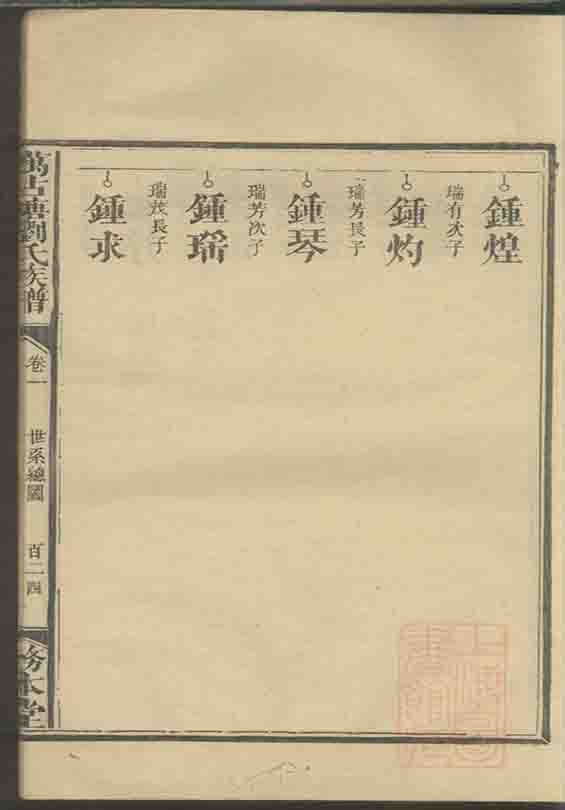 鍾煌
瑞有次子
鍾灼
瑞芳長子
鍾琴
瑞芳次子
鍾瑶
瑞茂長子
鍾求
劉氏族譜
卷一
世系總圖
百二四
務本堂